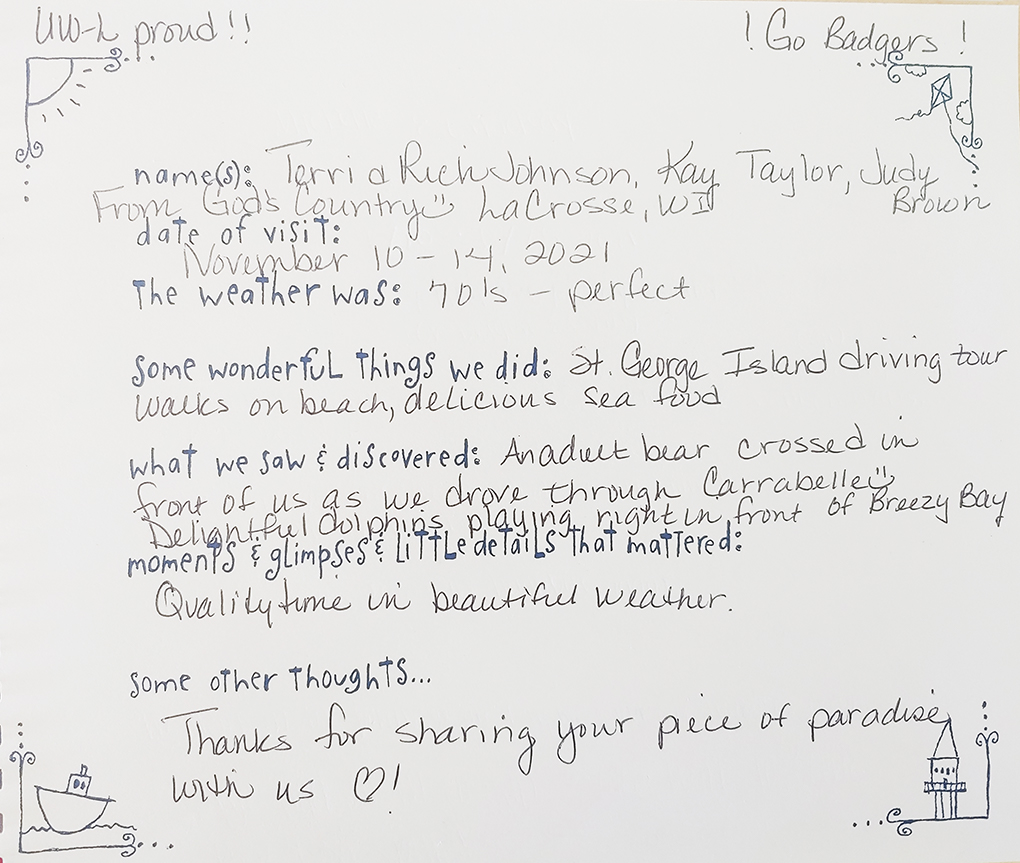 UW-L proud!!
! Go Badgers !
name(s): Terri & Rich Johnson, Kay Taylor, Judy Brown
From God's Country LaCrosse, WI
date of visit:
November 10 - 14, 2021
The weather was: 70's - perfect
some wonderful things we did: St. George Island driving tour
walks on beach, delicious sea food
what we saw & discovered: An adult bear crossed in
front of us as we drove through Carrabelle
Delightful dolphins playing right in front of Breezy Bay
moments & glimpses & little details that mattered:
Quality time in beautiful weather.
some other thoughts...
Thanks for sharing your piece of paradise
with us ♡!